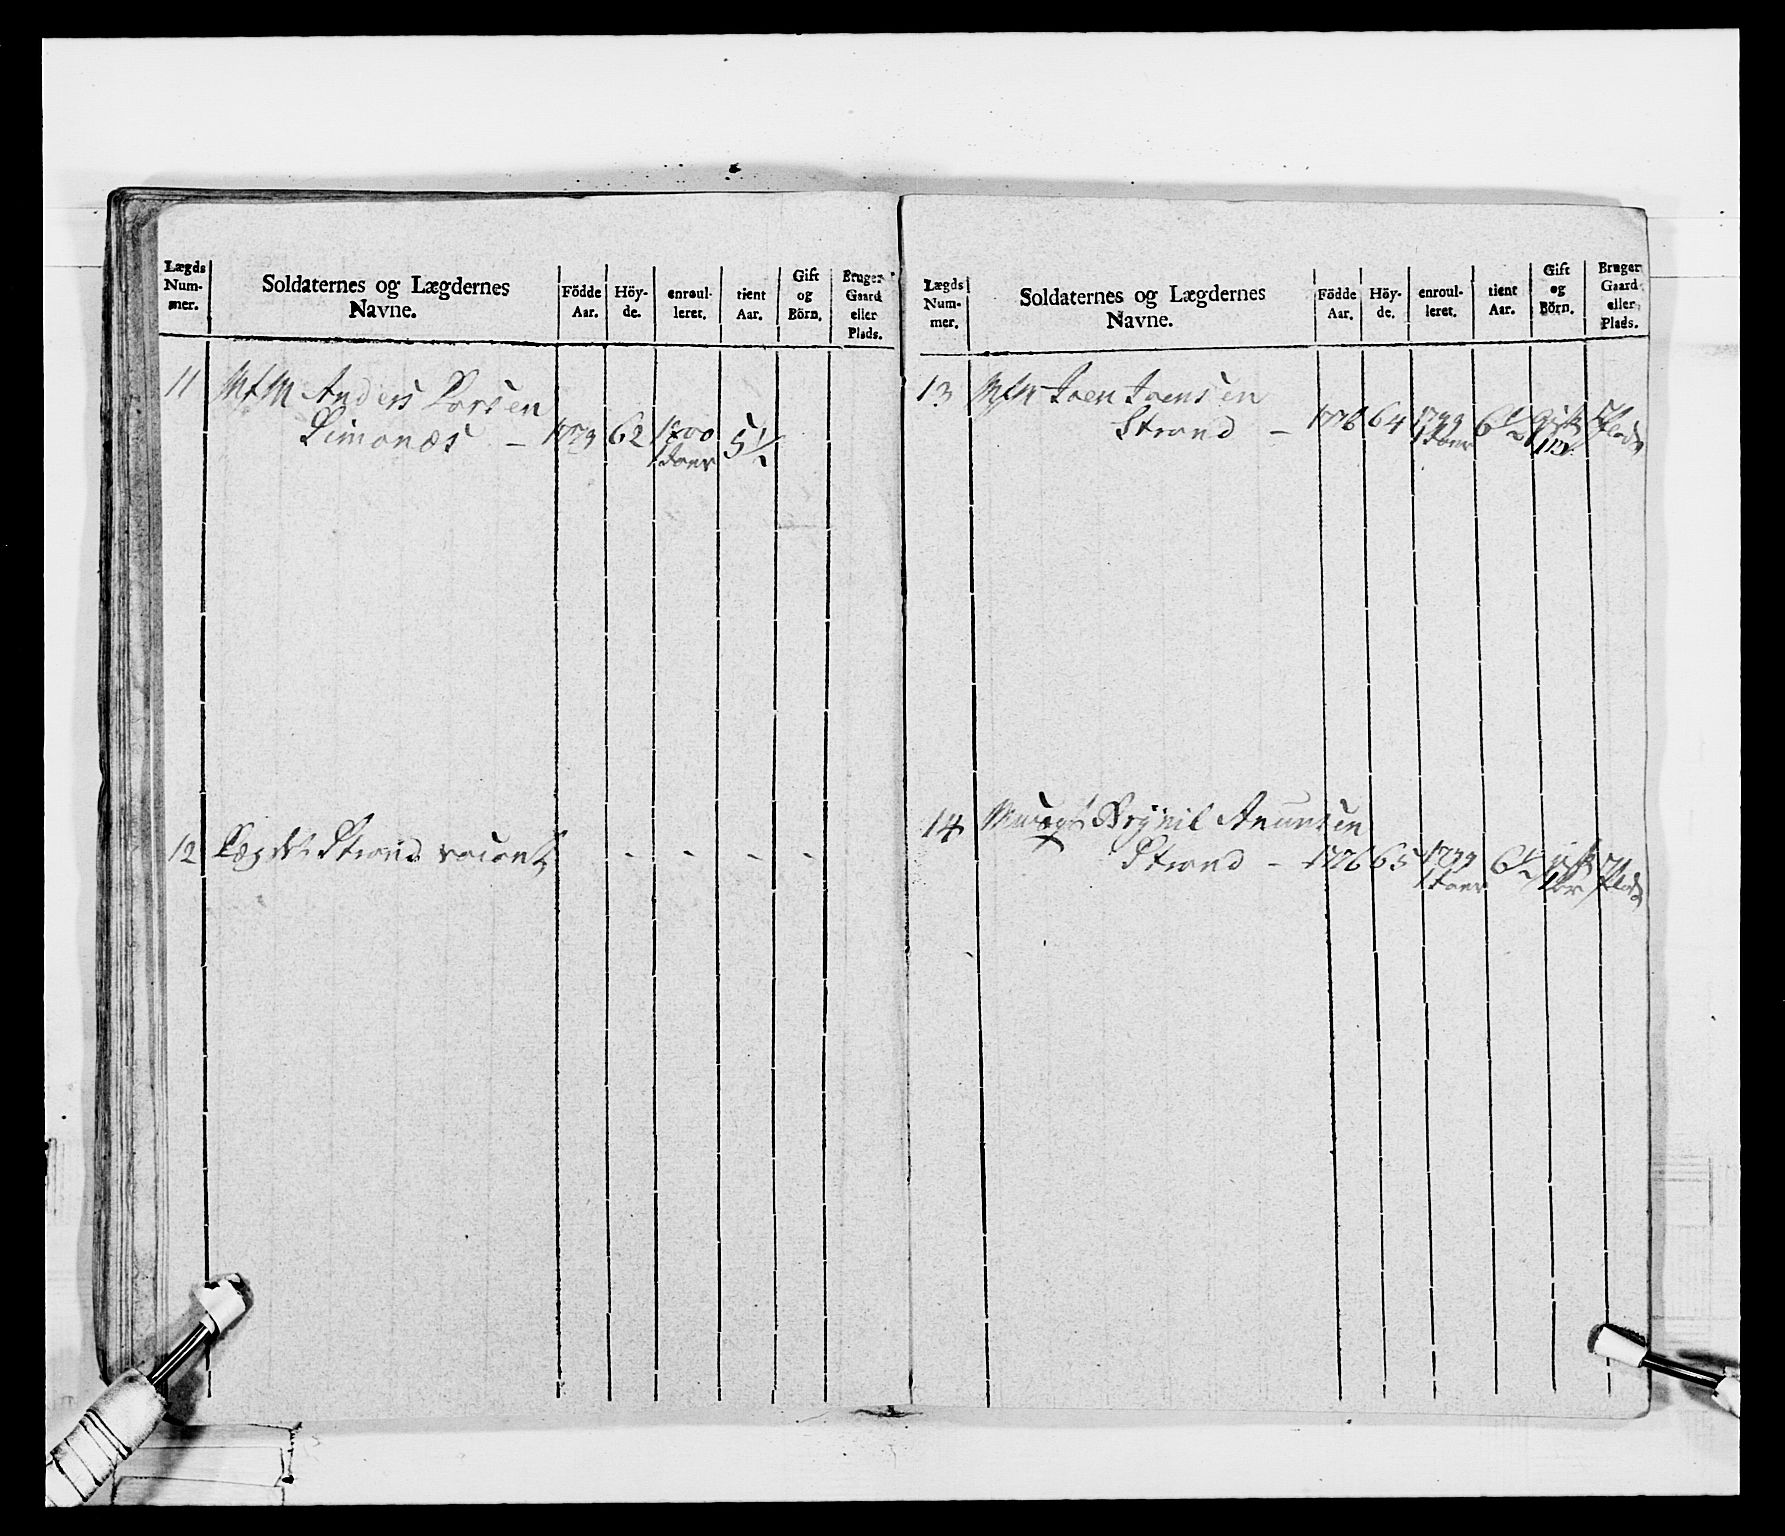 Lægds Num- mer.
Soldaternes og Lægdernes Navne.
Födde Aar.
Höy- de.
enroul- leret.
tient Aar.
Gift og Börn.
Bruger Gaard eller Plads.
11 Anders Larsen
Simonæs – 1773 62 1800 5½
12 Lægdet Strand vacant - - - -
Lægds Num- mer.
Soldaternes og Lægdernes Navne.
Födde Aar.
Höy- de.
enroul- leret.
tient Aar.
Gift og Börn.
Bruger Gaard eller Plads.
13 Joen Joensen
Strand – 1776 64 1799 6½ Gift Plads
14 Brynil Amunsen
Strand – 1776 65 1799 6½ Gift Plads